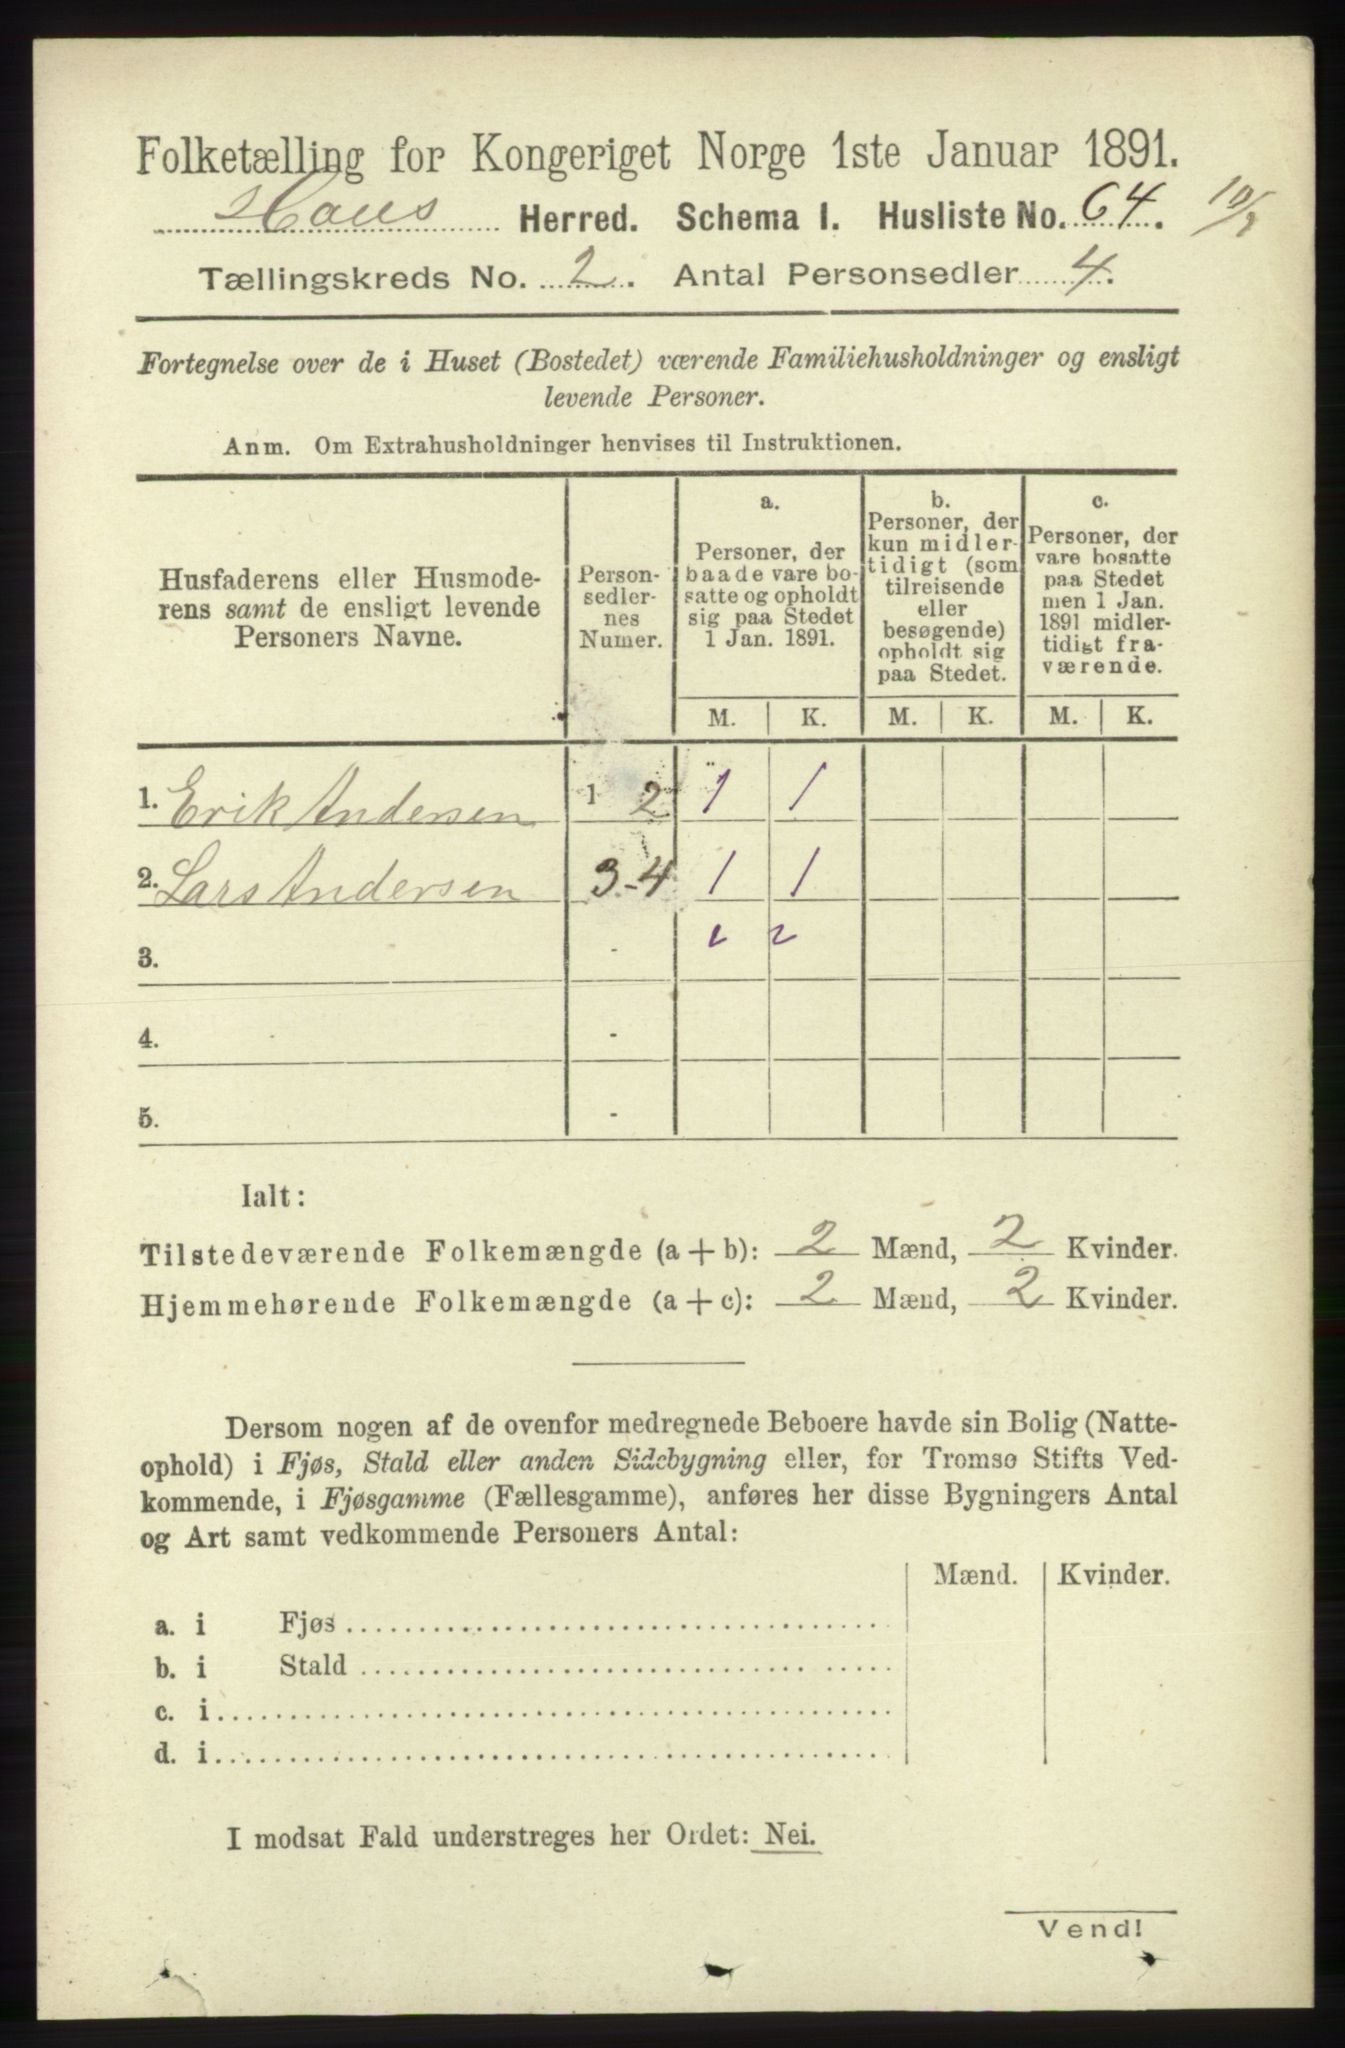 Folketælling for Kongeriget Norge 1ste Januar 1891.
Haus Herred. Schema I. Husliste No. 64. 10/2
Tællingskreds No. 2. Antal Personsedler 4.
Fortegnelse over de i Huset (Bostedet) værende Familiehusholdninger og ensligt
levende Personer.
Anm. Om Extrahusholdninger henvises til Instruktionen.
Husfaderens eller Husmode-
rens samt de ensligt levende
Personers Navne.
Person-
sedler-
nes
Numer.
a.
Personer, der
baade vare bo-
satte og opholdt
sig paa Stedet
1 Jan. 1891.
b.
Personer, der
kun midler-
tidigt (som
tilreisende
eller
besøgende)
opholdt sig
paa Stedet.
c.
Personer, der
vare bosatte
paa Stedet
men 1 Jan.
1891 midler-
tidigt fra-
værende.
M. K. M. K. M. K.
1. Erik Andersen 1 2 1 1
2. Lars Andersen 3-4 1 1
3. - 2 2
4. -
5. -
Ialt:
Tilstedeværende Folkemængde (a+b): 2 Mænd, 2 Kvinder.
Hjemmehørende Folkemængde (a+c): 2 Mænd, 2 Kvinder.
Dersom nogen af de ovenfor medregnede Beboere havde sin Bolig (Natte-
ophold) i Fjøs, Stald eller anden Sidebygning eller, for Tromsø Stifts Ved-
kommende, i Fjøsgamme (Fællesgamme), anføres her disse Bygningers Antal
og Art samt vedkommende Personers Antal:
Mænd. Kvinder.
a. i Fjøs
b. i Stald
c. i
d. i
I modsat Fald understreges her Ordet: Nei.
Vend!